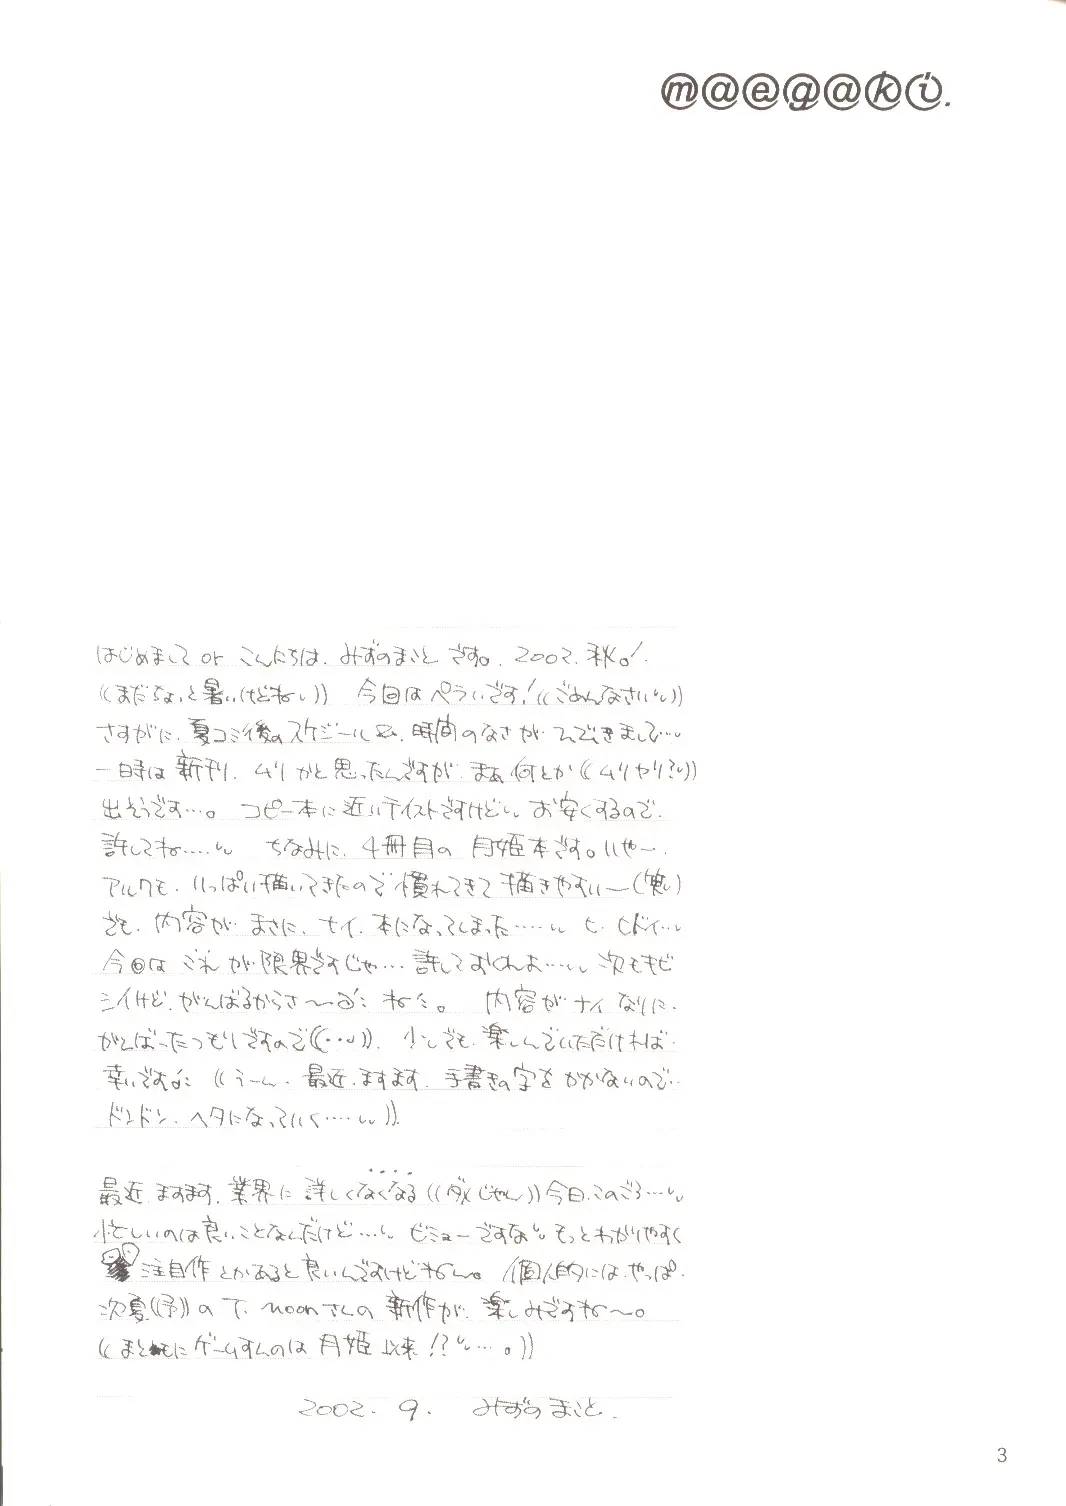 m@eg@ki.
はじめまして or こんにちは、みずのまことです。2002.秋。!
((まだちょっと暑いけどねい)) 今回はペラいです!((ごめんなさいい))
さすがに、夏コミ後のスケジール&、時間のなさが、ひびきまして…
一時は新刊、ムリかと思ったんですが、まぁ何とか((ムリヤリ?い))
出そうです…。コピー本に近いテイストですけどいい お安くするので、
許してね……い ちなみに、4冊目の 月姫本です。いやー、
アルクも、いっぱい描いてきたので慣れてきて描きやすいー
でも、内容が、まさに、ナイ、本になってしまった……い ヒ、ヒドイ…い
今回は これが限界ですじゃ…許しておくれよ……い 次もキビ
シイけど、がんばるからさ〜 ね。 内容がナイなりに、
がんばったつもりですので((…い))、少しでも、楽しんでいただければ、
幸いです ((うーん、最近、ますます、手書きの字をかかないので…
ドンドン、ヘタになっていく……い))
最近ますます、業界に詳しくなくなる((ダメじゃん))今日このごろ…い
忙しいのは良いことなんだけど…い ビミョーですないい もっとわかりやすく
注目作とかあると良いんですけどねー。個人的には、やっぱ、
次夏((予))の T、moonさんの新作が、楽しみですね〜。
((まともにゲームすんのは月姫以来!?い…。))
2002. 9. みずのまこと.
3